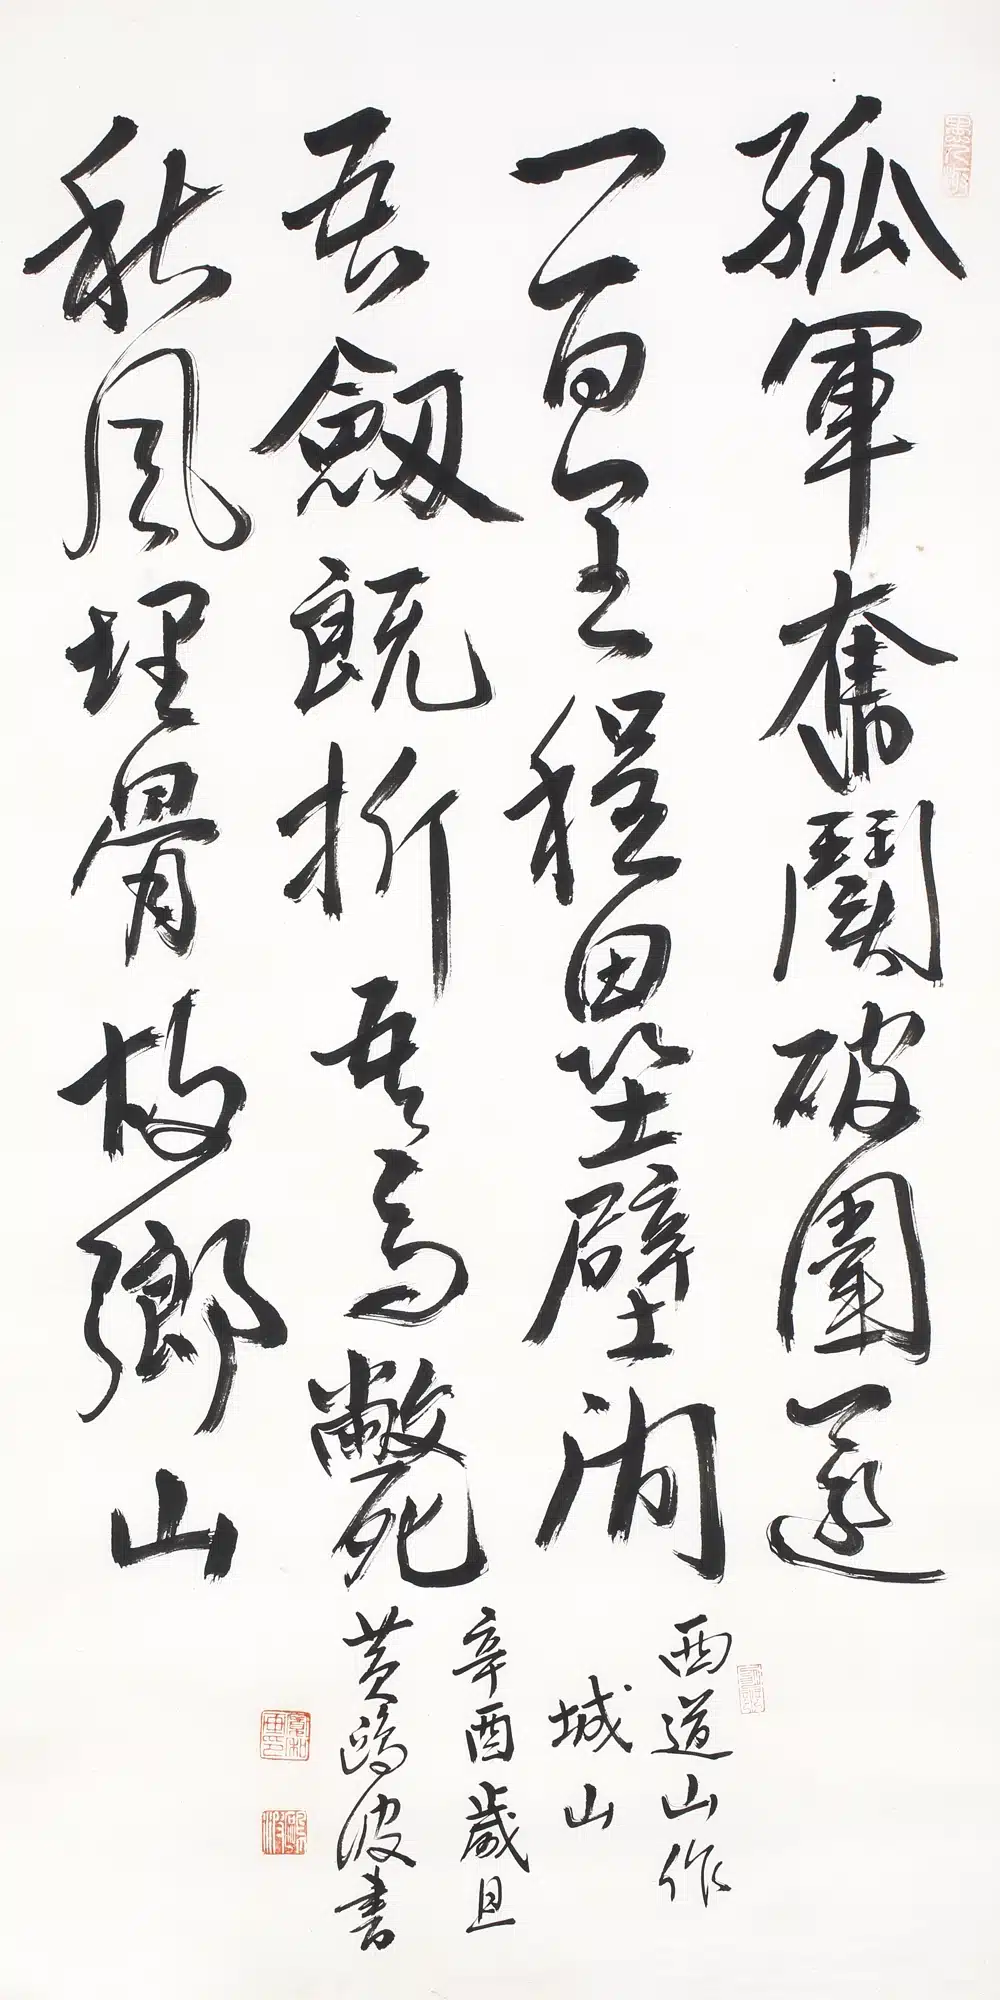 孤軍奮鬪破圍還
一百里程壘壁間
吾劒既折吾馬斃
秋風埋骨故鄉山
西道山作
城山
辛酉歲旦
黃鷗波書